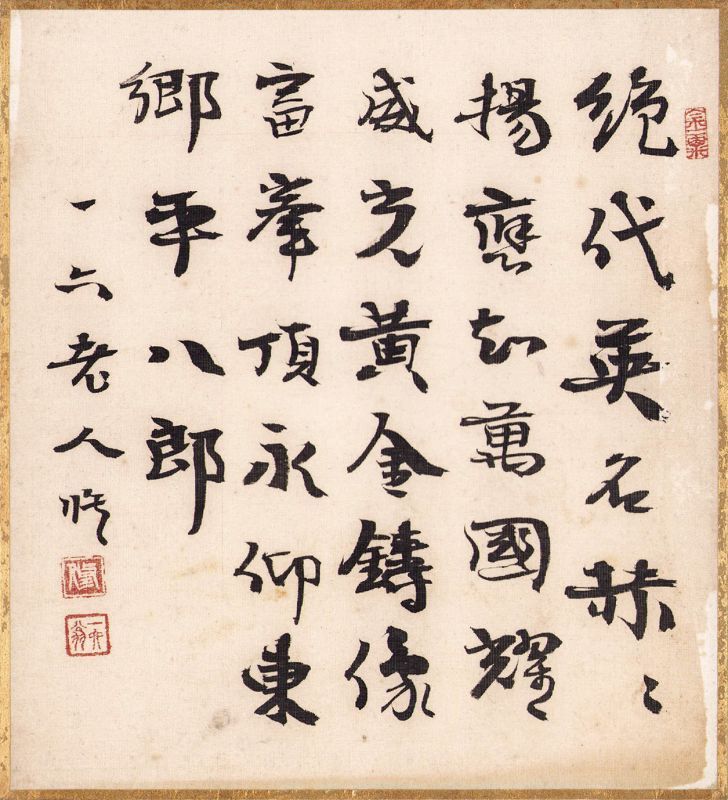 絶代英名赫〻
揚應知萬國耀
威光黄金鑄像
富峯頂永仰東
郷平八郎
一六老人脩
一六翁